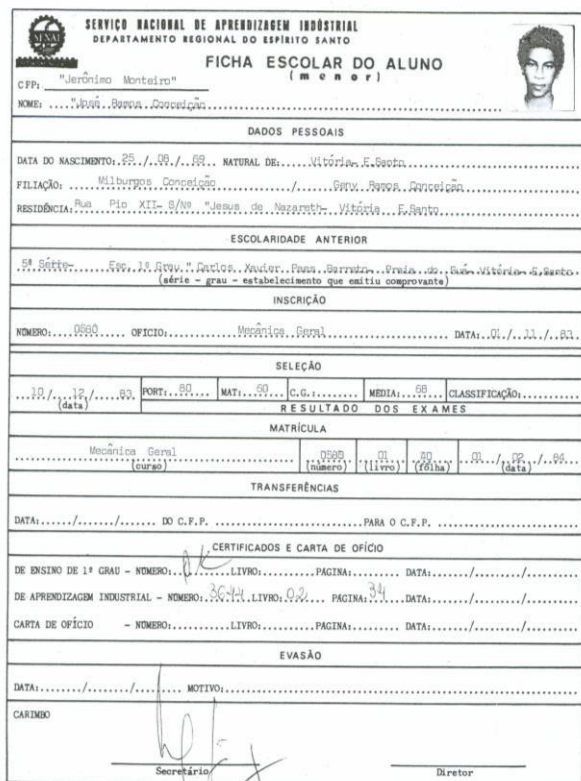 SENAI
SERVIÇO NACIONAL DE APRENDIZAGEM INDÚSTRIAL
DEPARTAMENTO REGIONAL DO ESPÍRITO SANTO
FICHA ESCOLAR DO ALUNO
(menor)
CFP: "Jerônimo Monteiro"
NOME: ...."José Ramos Conceição
DADOS PESSOAIS
DATA DO NASCIMENTO: 25 / 08 / 69 NATURAL DE: Vitória- E.Santo
FILIAÇÃO: Milburgos Conceição / Geny Ramos Conceição
RESIDÊNCIA: Rua Pio XII- S/Nº "Jesus de Nazareth- Vitória E.Santo
ESCOLARIDADE ANTERIOR
5ª Série- Esc. 1º Grau " Carlos Xavier Paes Barreto- Praia do Suá- Vitória- E.Santo
(série - grau - estabelecimento que emitiu comprovante)
INSCRIÇÃO
NÚMERO: 0580 OFICIO: Mecânica Geral DATA: 01 / 11 / 83
SELEÇÃO
10 / 12 / 83 PORT: 80 MAT: 60 C.G.: MÉDIA: 68 CLASSIFICAÇÃO:
(data) RESULTADO DOS EXAMES
MATRÍCULA
Mecânica Geral 0580 01 40 01 / 02 / 84
(curso) (número) (livro) (fôlha) (data)
TRANSFERÊNCIAS
DATA: / / DO C.F.P. PARA O C.F.P.
CERTIFICADOS E CARTA DE OFÍCIO
DE ENSINO DE 1º GRAU - NÚMERO: LIVRO: PÁGINA: DATA: / /
DE APRENDIZAGEM INDUSTRIAL - NÚMERO: 3644 LIVRO: 02 PÁGINA: 34 DATA: / /
CARTA DE OFÍCIO - NÚMERO: LIVRO: PÁGINA: DATA: / /
EVASÃO
DATA: / / MOTIVO:
CARIMBO
Secretário Diretor